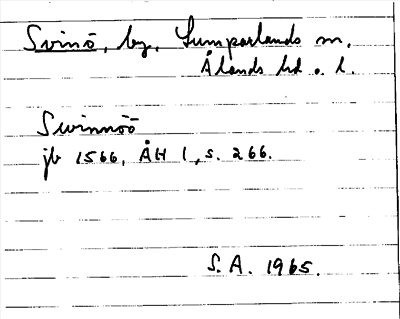 Svinö, by, Lumparlands sn,
Ålands hd o. l.
Swinnöö
jb 1566, ÅH 1, s. 266.
S. A. 1965.